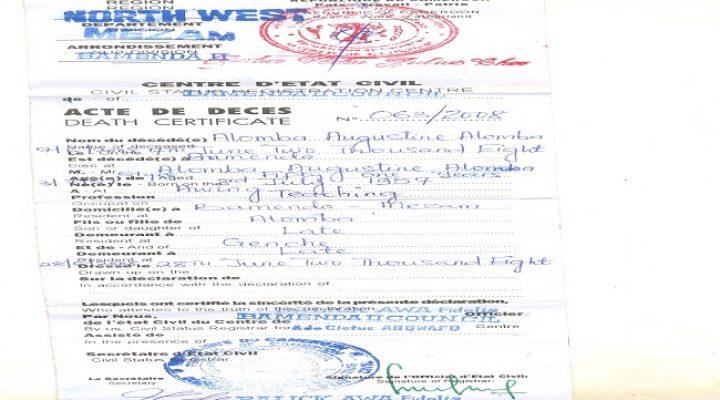 REGION
REGION
NORTH WEST
DEPARTEMENT
DIVISION
MEZAM
ARRONDISSEMENT
BAMENDA II
Patrie
CENTRE D'ETAT CIVIL
CIVIL STATUS REGISTRATION CENTRE
de - of BAMENDA II COUNCIL
ACTE DE DECES
DEATH CERTIFICATE
N° 063/2008
Nom du décédé(e) Alomba Augustine Alomba
Name of deceased
June Two Thousand Eight
Est décédé(e) à Bamenda
Died at
M. Alomba Augustine Alomba
Agé(e) de - Aged Fifty one years
Né(e) le - Born on the 3rd July 1957
A - At Awing
Profession Teaching
Occupation
Domicilié(e) à Bamenda - Mezam
Resident at
Fils ou fille de Alomba
Son or daughter of
Demeurant à Late
Resident at
Et de - And of Genche
Demeurant à Late
Resident at
Dressé le 22nd June Two Thousand Eight
Drawn up on the
Sur la déclaration de
In accordance with the declaration of
Lesquels ont certifié la sincérité de la présente déclaration,
Who attested to the truth of this declaration
Par Nous, AWA Fidelis Officier
BAMENDA II COUNCIL
de l'état Civil du Centre de
By us, Civil Status Registrar for Ade Cletus ANGWAFO Centre
Assisté de
In the presence of
Secrétaire d'Etat Civil
Civil Status Registrar
Le Secrétaire
Secretary
Signature de l'Officier d'Etat Civil:
Signature of Registrar
AWA Fidelis